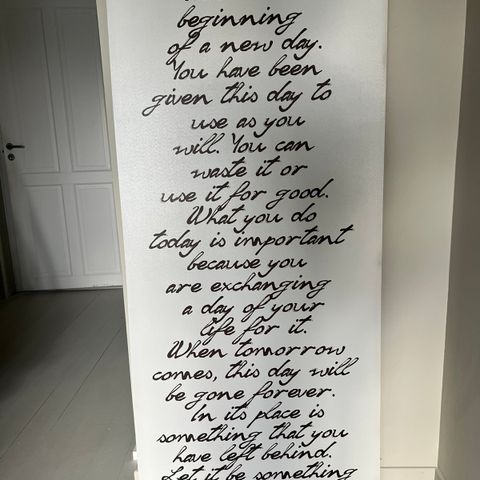 beginning
of a new day.
You have been
given this day to
use as you
will. You can
waste it or
use it for good.
What you do
today is important
because you
are exchanging
a day of your
life for it.
When tomorrow
comes, this day will
be gone forever.
In its place is
something that you
have left behind.
Let it be something